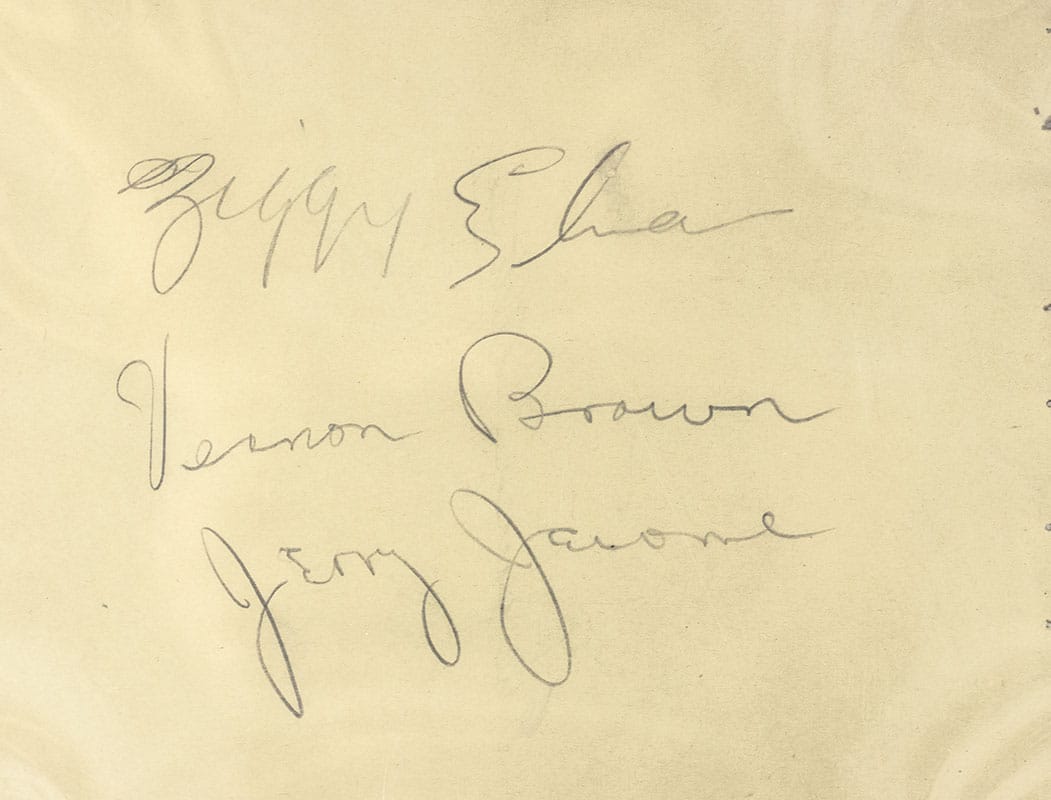 Ziggy Elman
Vernon Brown
Jerry Jerome